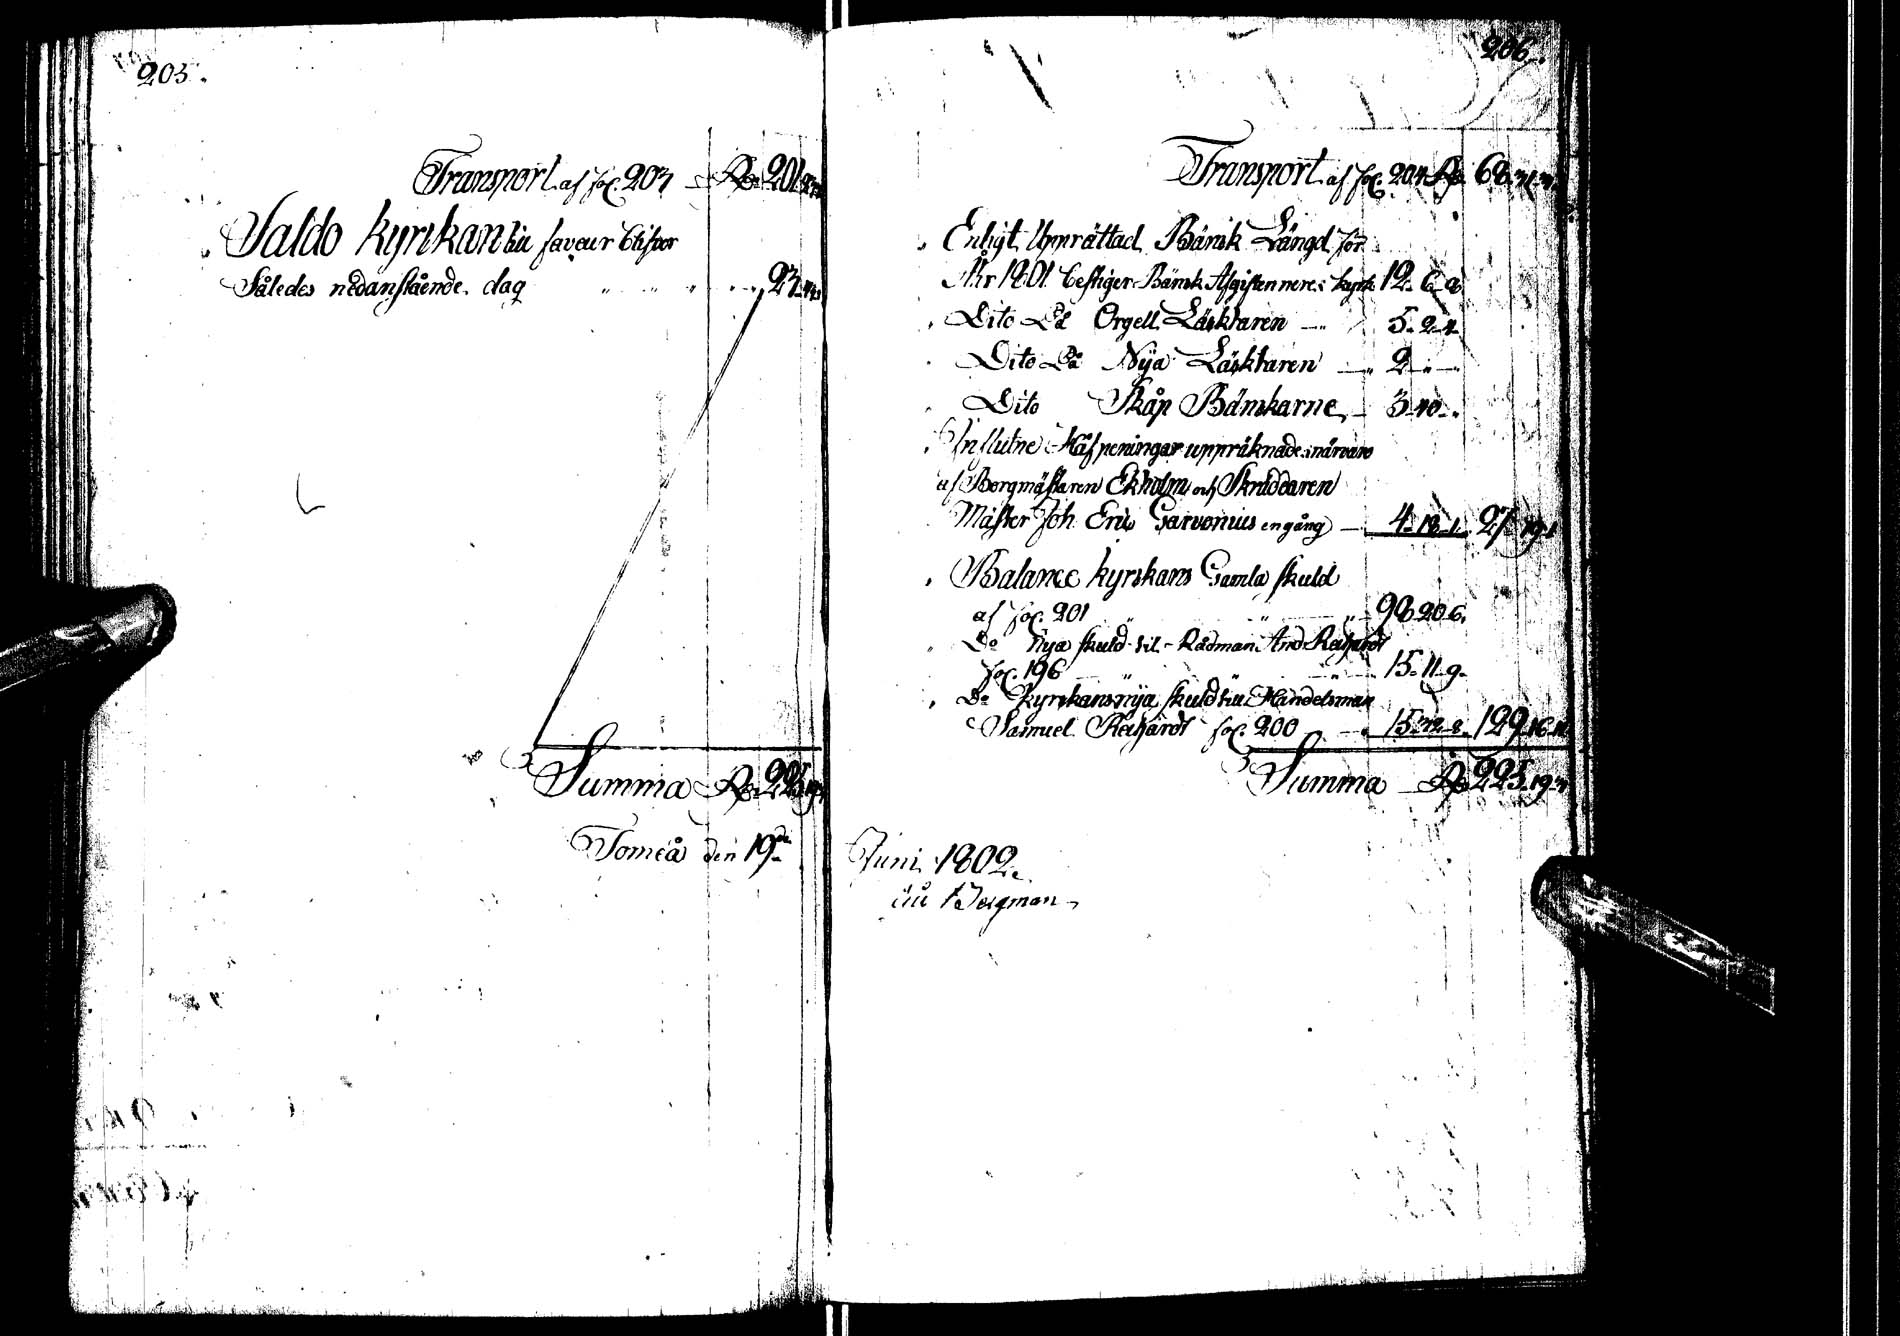 205.
Transport af fol. 203 Rd 201
Saldo kyrckan till faveur blifver
Således nedanstående dag 23
Summa Rd 225
Torneå den 19de
206.
Transport af fol. 204 Rd 68
Enligt Upprättad Bänk Längd för
År 1801 bestiger Bänk Afgiften nere i kyrk 12-6-8
Dito På Orgell Läcktaren 5-24
Dito På Nÿa Läcktaren 2
Dito Skåp Bänckarne 3-40
Influtne Håfpeningar uppräknade i närvaro
af Borgmästaren Ekholm och Skräddaren
Mäster Joh Eric en gång 4-18-1 27-19-1
Balance kyrckans Gamla skuld
af fol. 201 98-20-6
Do Nya skuld til Rådman And
fol. 196 15-11-9
Do kyrckans nÿa skuld till Handelsman
Samuel fol. 200 15-32-8 129-16-11
Summa Rd 225-19
Juni 1802.
Bergman